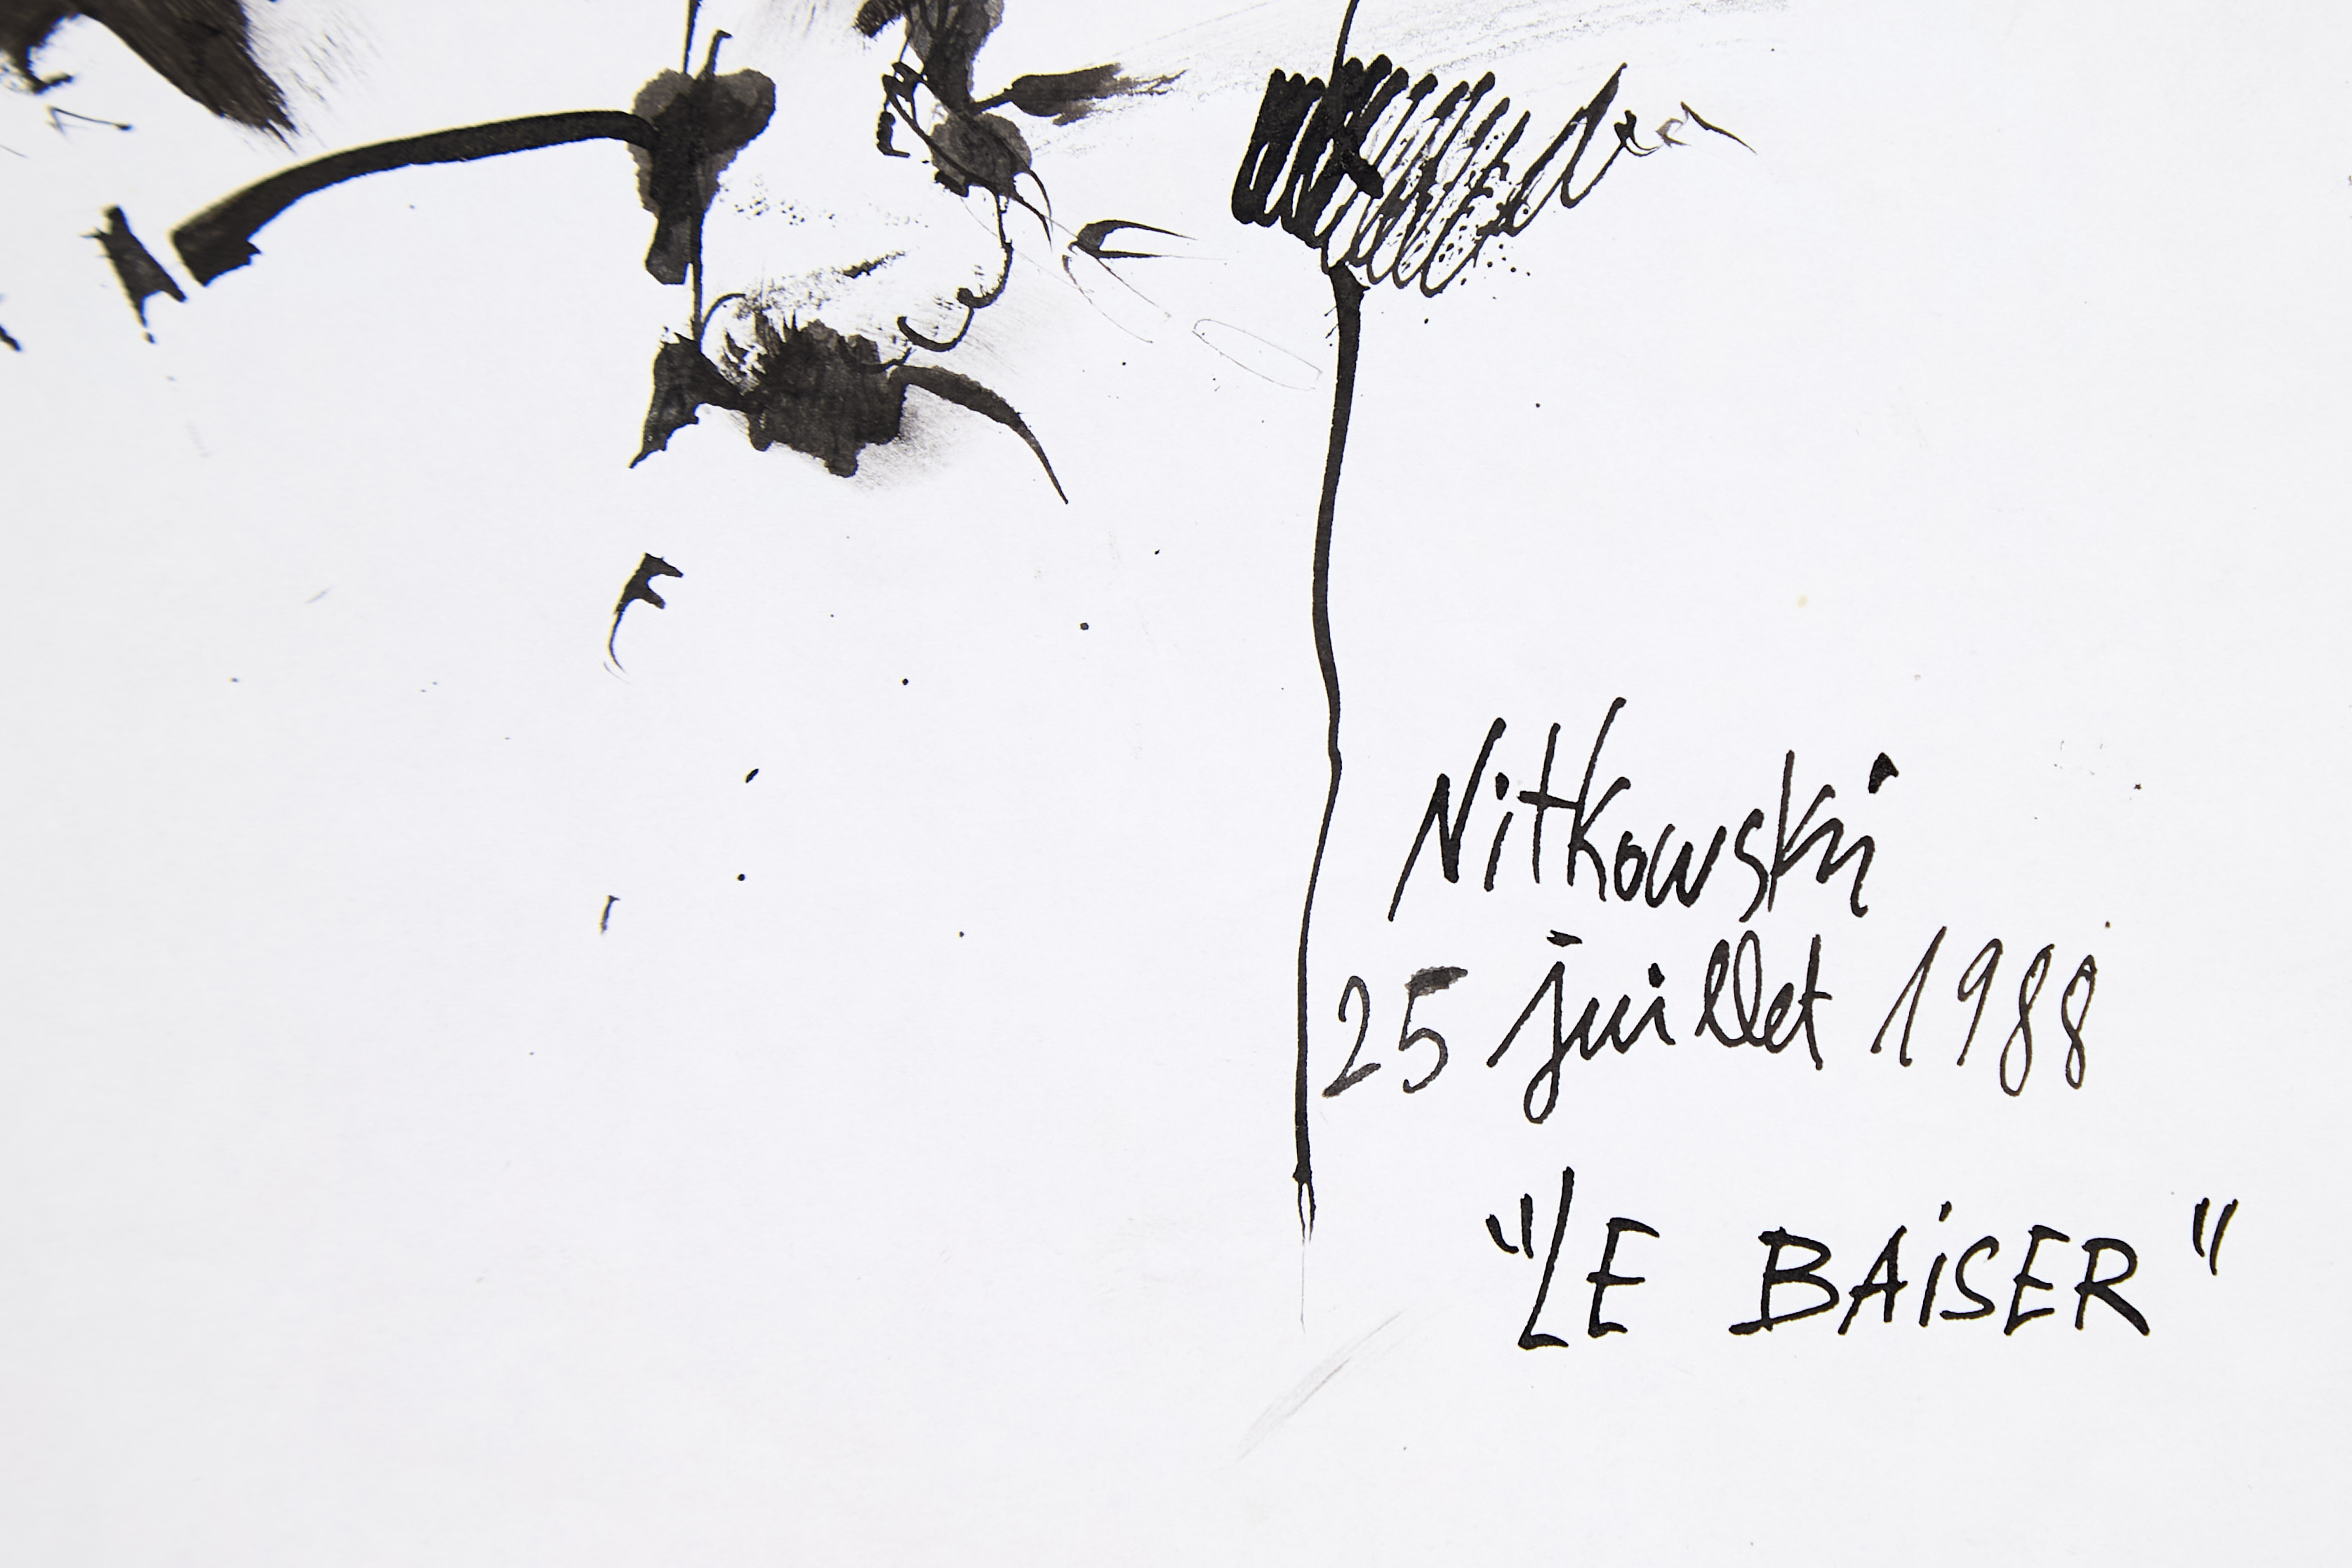 Nitkowski
25 juillet 1988
"LE BAiSER"